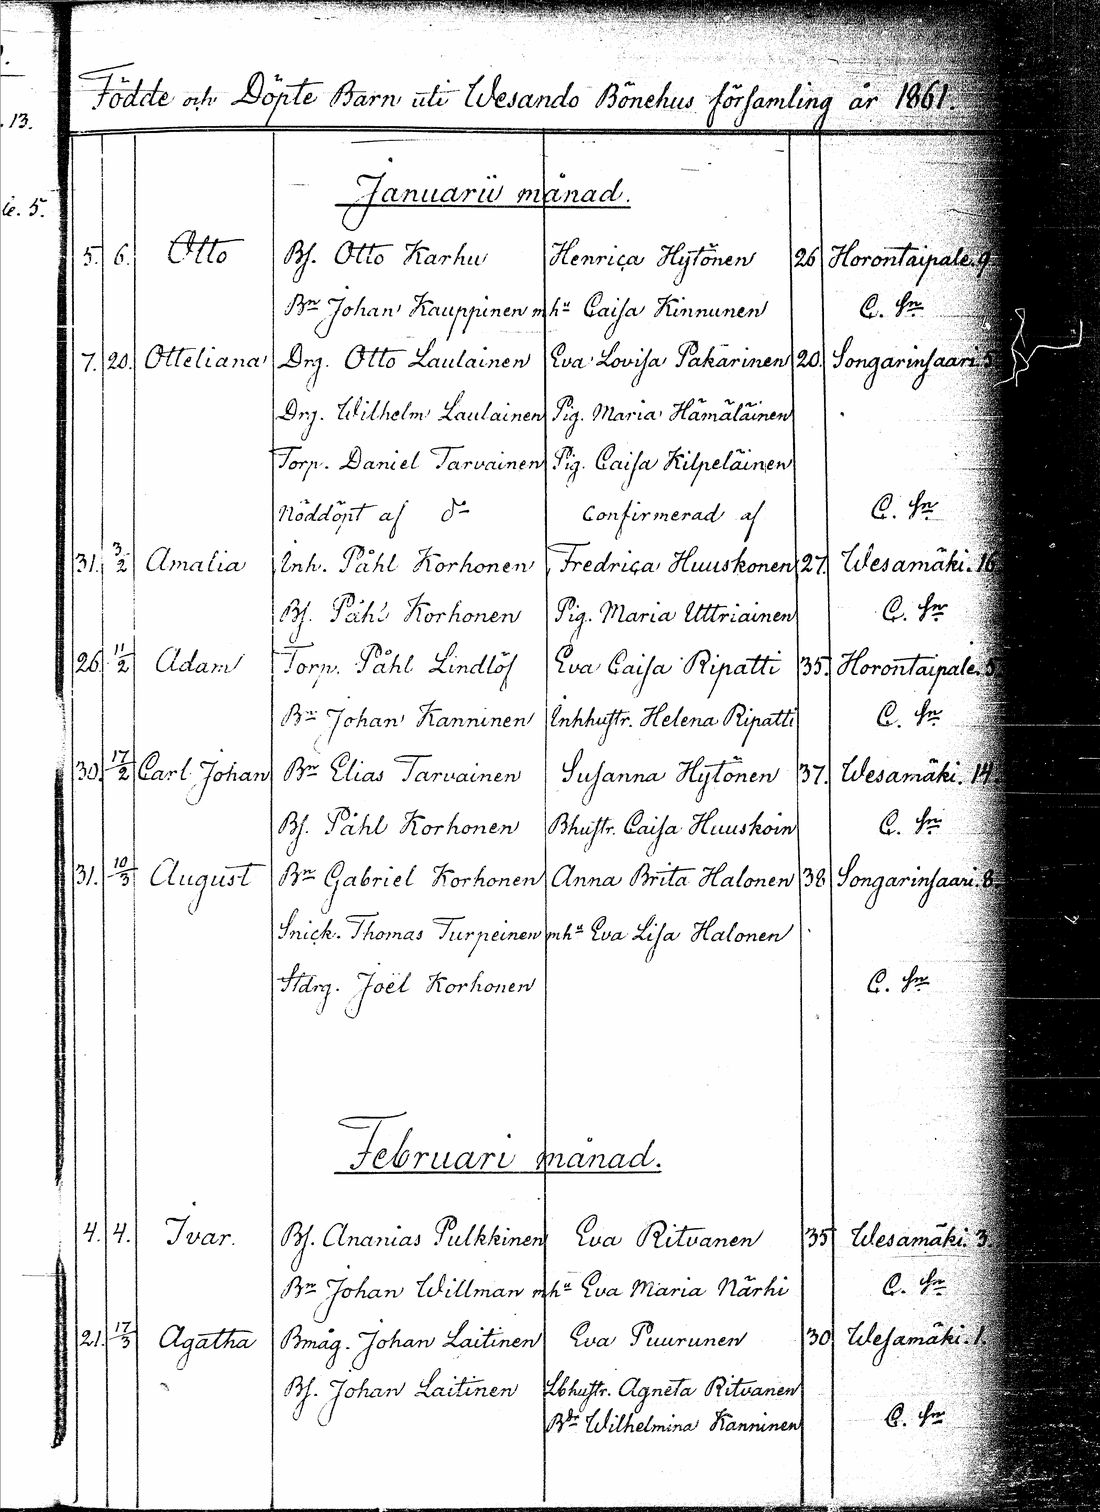 .13.
ie. 5.
Födde och Döpte Barn uti Wesando Bönehus församling år 1861.
Januarii månad.
5. 6. Otto Bs. Otto Karhu Henrica Hytönen 26 Horontaipale. 9
Bn Johan Kauppinen mhu Caisa Kinnunen C. Sn
7. 20. Otteliana Drg. Otto Laulainen Eva Lovisa Pakarinen 20. Songarinsaari. 5
Drg. Wilhelm Laulainen Pig. Maria Hämäläinen
Torp. Daniel Tarvainen Pig. Caisa Kilpeläinen
Nöddöpt af dn Confirmerad af C. Sn
31. 3/2 Amalia Inh. Påhl Korhonen Fredrica Huuskonen 27. Wesamäki. 16
Bs. Påhl Korhonen Pig. Maria Uttriainen C. Sn
26. 11/2 Adam Torp. Påhl Lindlöf Eva Caisa Ripatti 35. Horontaipale. 5
Bn Johan Kanninen Inhhustr. Helena Ripatti C. Sn
30. 17/2 Carl Johan Bn Elias Tarvainen Susanna Hytönen 37. Wesamäki. 14.
Bs. Påhl Korhonen Bhustr. Caisa Huuskoin C. Sn
31. 10/3 August Bn Gabriel Korhonen Anna Brita Halonen 38 Songarinsaari. 8.
Snick. Thomas Turpeinen mhu Eva Lisa Halonen
Stdrg. Joël Korhonen C. Sn
Februari månad.
4. 4. Ivar. Bs. Ananias Pulkkinen Eva Ritvanen 35 Wesamäki. 3.
Bn Johan Willman mhu Eva Maria Närhi C. Sn
21. 17/3 Agatha Bmåg. Johan Laitinen Eva Puurunen 30 Wesamäki. 1.
Bs. Johan Laitinen Lbhustr. Agneta Ritvanen
Bdr Wilhelmina Kanninen C. Sn